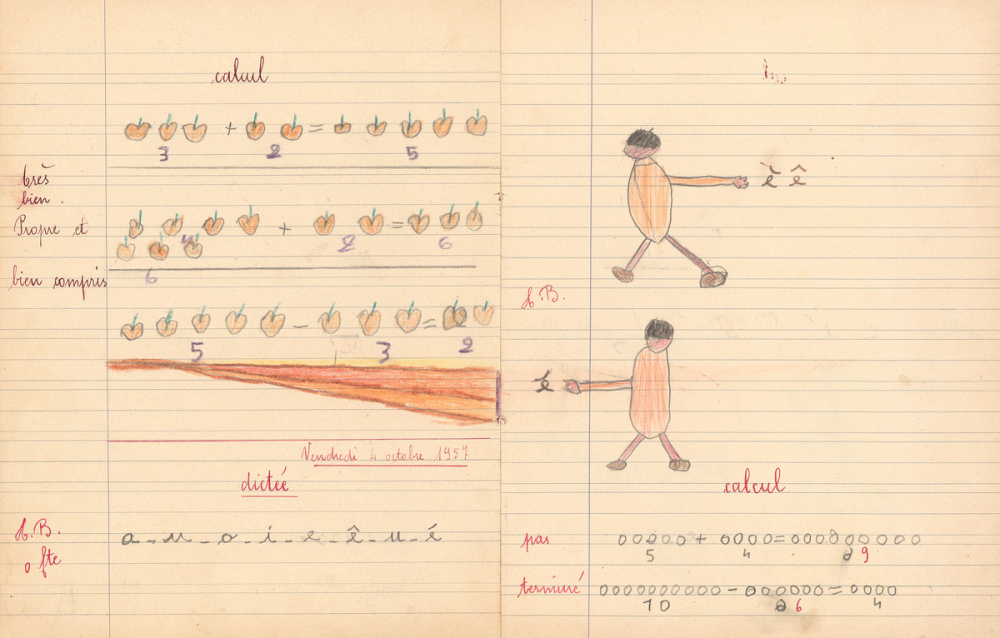 calcul
+ =
3 2 5
très
bien.
Propre et
+ =
4 2 6
bien compris
6
- =
5 3 2
Vendredi 4 octobre 1957
dictée
t.B.
a - u - o - i - e - ê - u - é
0 fte
è ê
t.B.
é
calcul
pas
00000 + 0000 = 000000000
5 4 9
terminé
0000000000 - 000000 = 0000
10 6 4